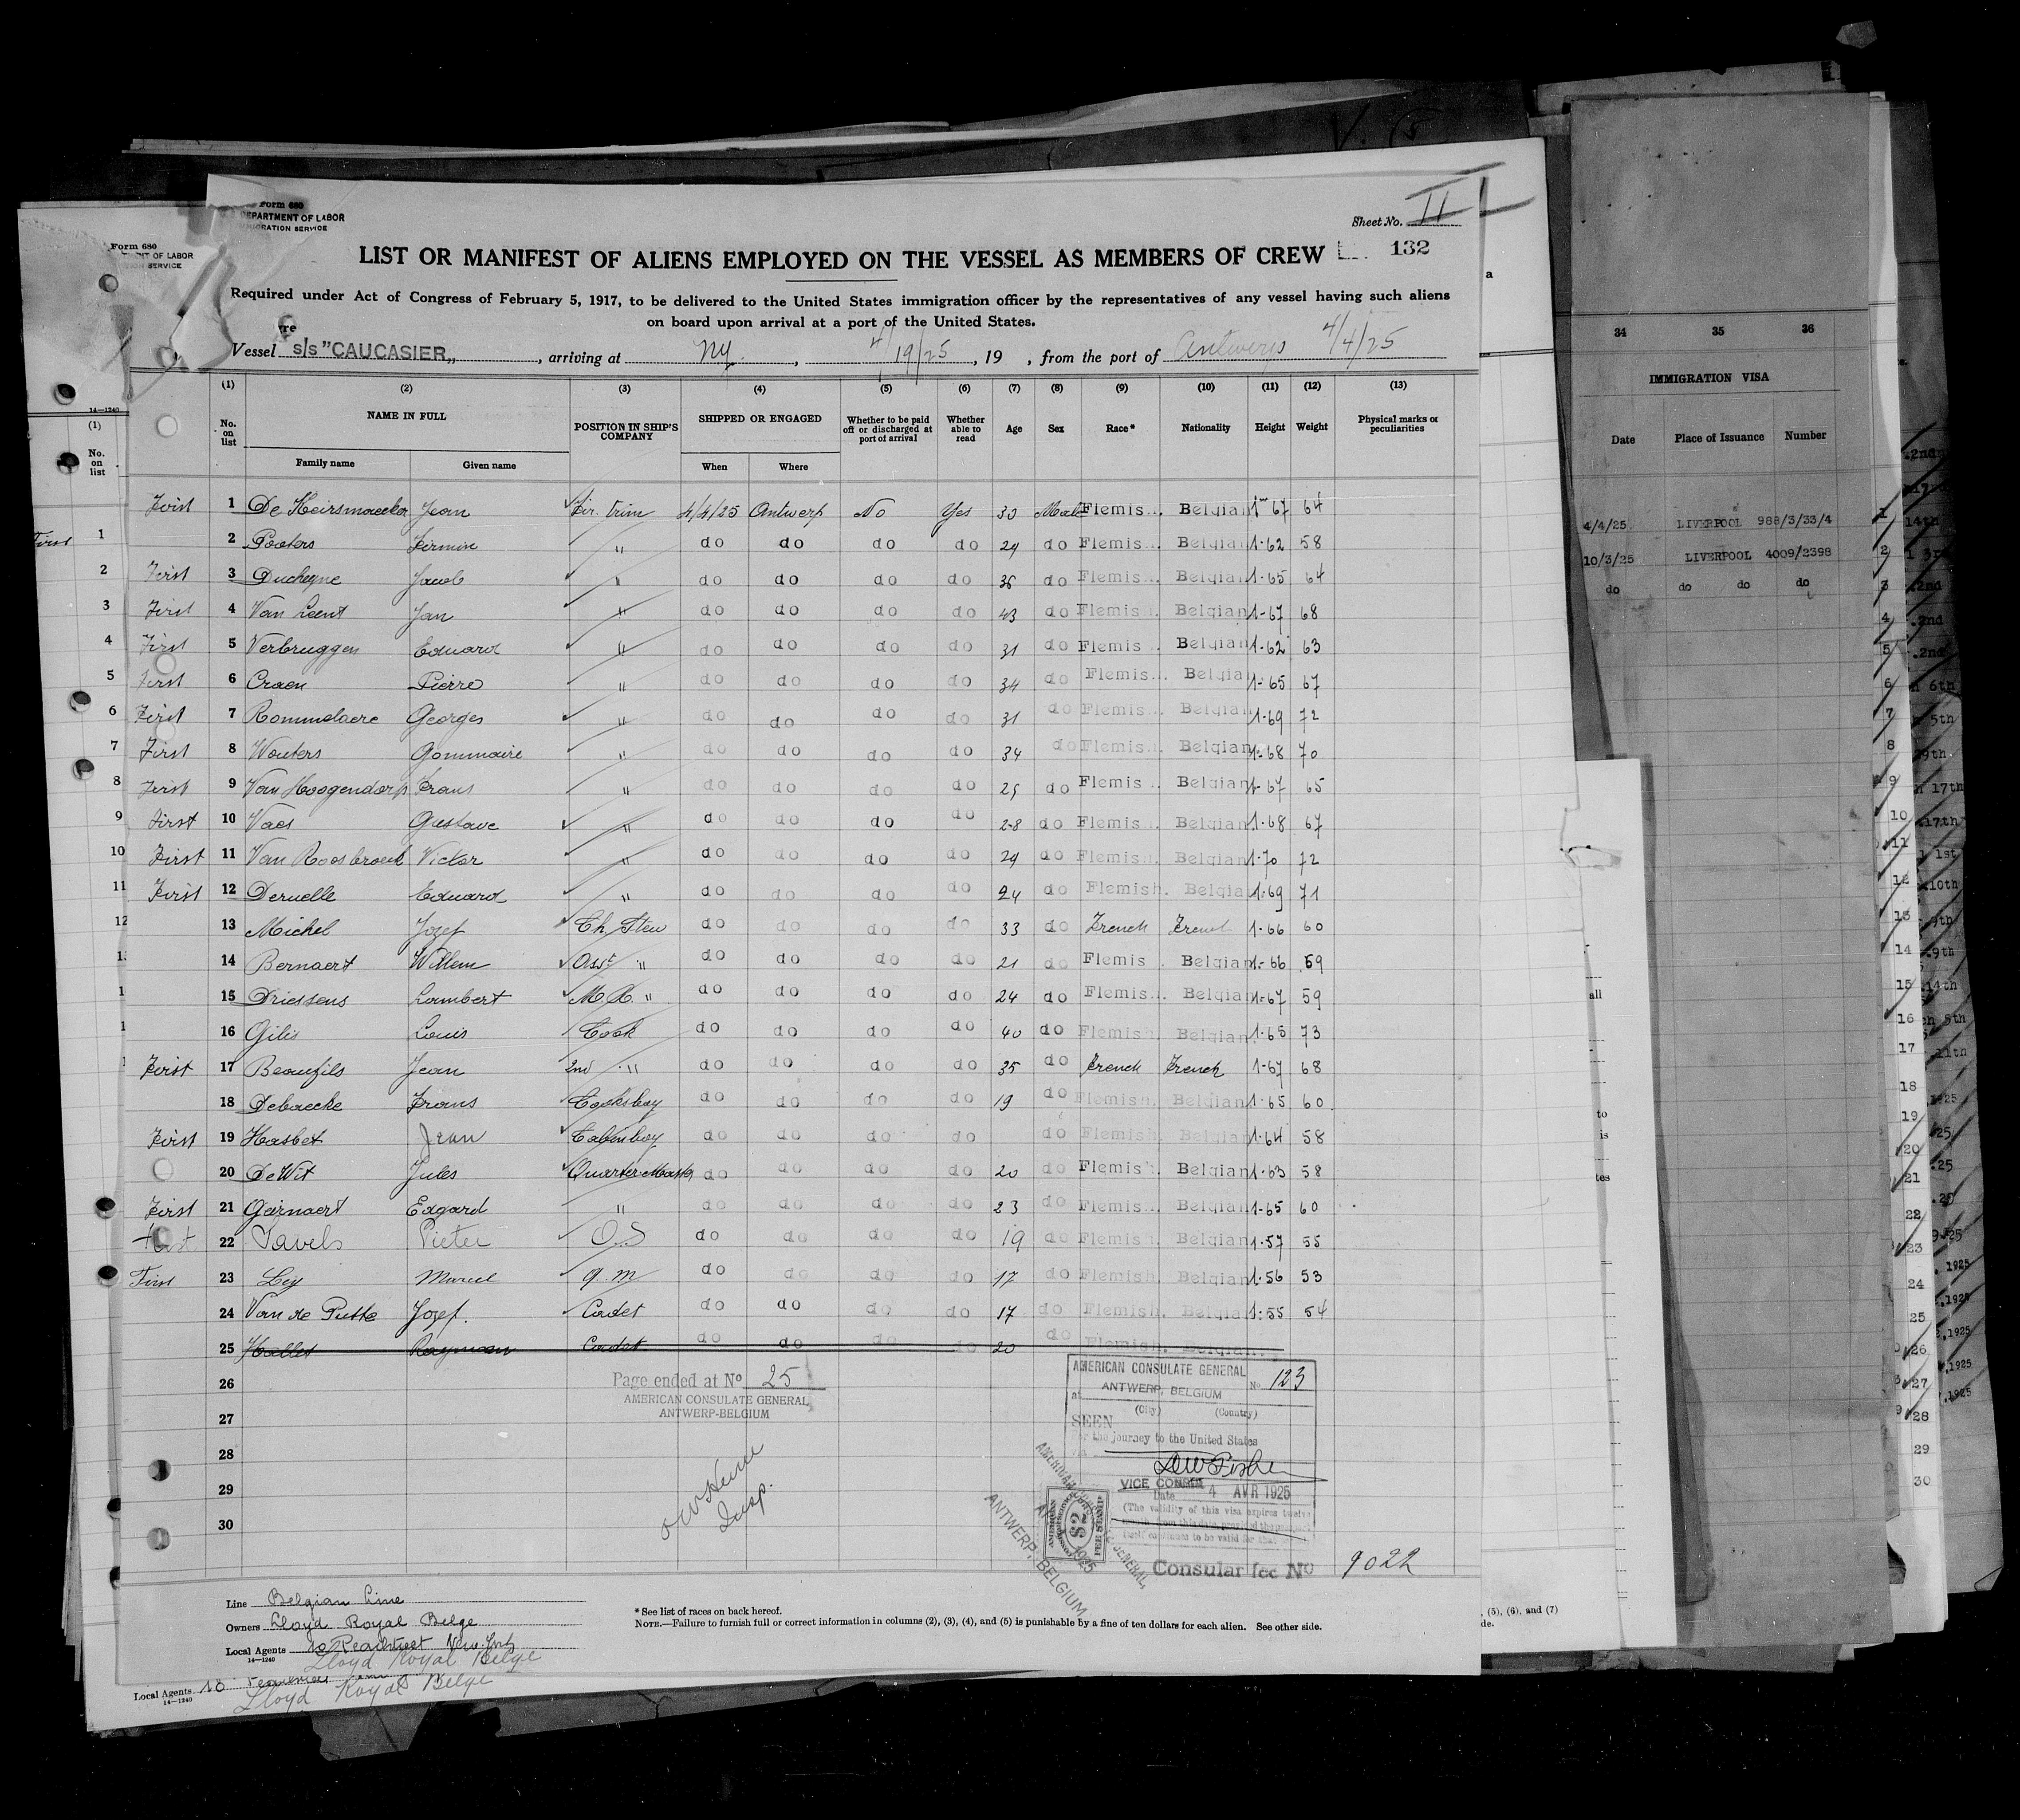 Form 680
DEPARTMENT OF LABOR
IMMIGRATION SERVICE
Sheet No. II
132
LIST OR MANIFEST OF ALIENS EMPLOYED ON THE VESSEL AS MEMBERS OF CREW
Required under Act of Congress of February 5, 1917, to be delivered to the United States immigration officer by the representatives of any vessel having such aliens
on board upon arrival at a port of the United States.
Vessel s/s "CAUCASIER„ , arriving at Ny. , 4/19/25 , 19 , from the port of Antwerp 4/4/25
(1) (2) (3) (4) (5) (6) (7) (8) (9) (10) (11) (12) (13)
No. on list NAME IN FULL POSITION IN SHIP'S COMPANY SHIPPED OR ENGAGED Whether to be paid off or discharged at port of arrival Whether able to read Age Sex Race* Nationality Height Weight Physical marks or peculiarities
Family name Given name When Where
First 1 De Keirsmaecker Jean Fir. trim 4/4/25 Antwerp No Yes 30 Male Flemis. Belgian 1m 67 64
2 Pooters Firmin " do do do do 24 do Flemis. Belgian 1-62 58
First 3 Ducheyne Jacob " do do do do 36 do Flemis. Belgian 1-65 64
First 4 Van Leent Jan " do do do do 43 do Flemis. Belgian 1-67 68
First 5 Verbruggen Eduard " do do do do 31 do Flemis Belgian 1-62 63
First 6 Craen Pierre " do do do do 34 do Flemis. Belgia 1-65 67
First 7 Rommelaere Georges " do do do do 31 do Flemis. Belgian 1-69 72
First 8 Wouters Gommaire " do do do do 34 do Flemis. Belgian 1-68 70
First 9 Van Hoogendorp Frans " do do do do 25 do Flemis. Belgian 1-67 65
First 10 Vaes Gustave " do do do do 28 do Flemis. Belgian 1-68 67
First 11 Van Roosbroeck Victor " do do do do 24 do Flemish. Belgian 1-70 72
First 12 Deruelle Eduard " do do do do 24 do Flemish. Belgia 1-69 71
13 Michel Jozef Ch. Stew do do do do 33 do French French 1-66 60
14 Bernaert Willem Asst " do do do do 21 do Flemis. Belgian 1-66 59
15 Driessens Lambert M.R. " do do do do 24 do Flemis. Belgian 1-67 59
16 Gilis Louis Cook do do do do 40 do Flemish Belgian 1-65 73
First 17 Beaufils Jean 2nd " do do do do 35 do French French 1-67 68
18 Debaecke Frans Cooksboy do do do do 19 do Flemish. Belgian 1-65 60
First 19 Hasbet Jean Cabinboy do do do do do Flemish. Belgian 1-64 58
20 De Wit Jules Quarter-Master do do do do 20 do Flemish. Belgian 1-63 58
First 21 Gernaert Edgard " do do do do 23 do Flemis. Belgian 1-65 60
First 22 Pavels Pieter O.S do do do do 19 do Flemis. Belgian 1-57 55
First 23 Ley Marcel q.m do do do do 17 do Flemish. Belgian 1-56 53
24 Van de Putte Jozef. Cadet do do do do 17 do Flemish. Belgia 1-55 54
25 Hallet Raymon Cadet do do do do 20 do Flemish. Belgian.
26
27
28
29
30
Page ended at No 25
AMERICAN CONSULATE GENERAL
ANTWERP-BELGIUM
Insp.
AMERICAN CONSULATE GENERAL
at ANTWERP, BELGIUM No 123
(City) (Country)
SEEN
For the journey to the United States
VICE CONSUL
Date 4 AVR 1925
(The validity of this visa expires twelve
FEE STAMP
$2
1925
ANTWERP, BELGIUM
Consular fee No 9022
Line Belgian Line
Owners Lloyd Royal Belge
Local Agents 10 Pearlstreet New York
14—1240 Lloyd Royal Belge
*See list of races on back hereof.
NOTE.—Failure to furnish full or correct information in columns (2), (3), (4), and (5) is punishable by a fine of ten dollars for each alien. See other side.
Local Agents 10
14—1240 Lloyd Royal Belge
Form 680
34 35 36
IMMIGRATION VISA
Date Place of Issuance Number
4/4/25 LIVERPOOL 988/3/33/4
10/3/25 LIVERPOOL 4009/2398
do do do do